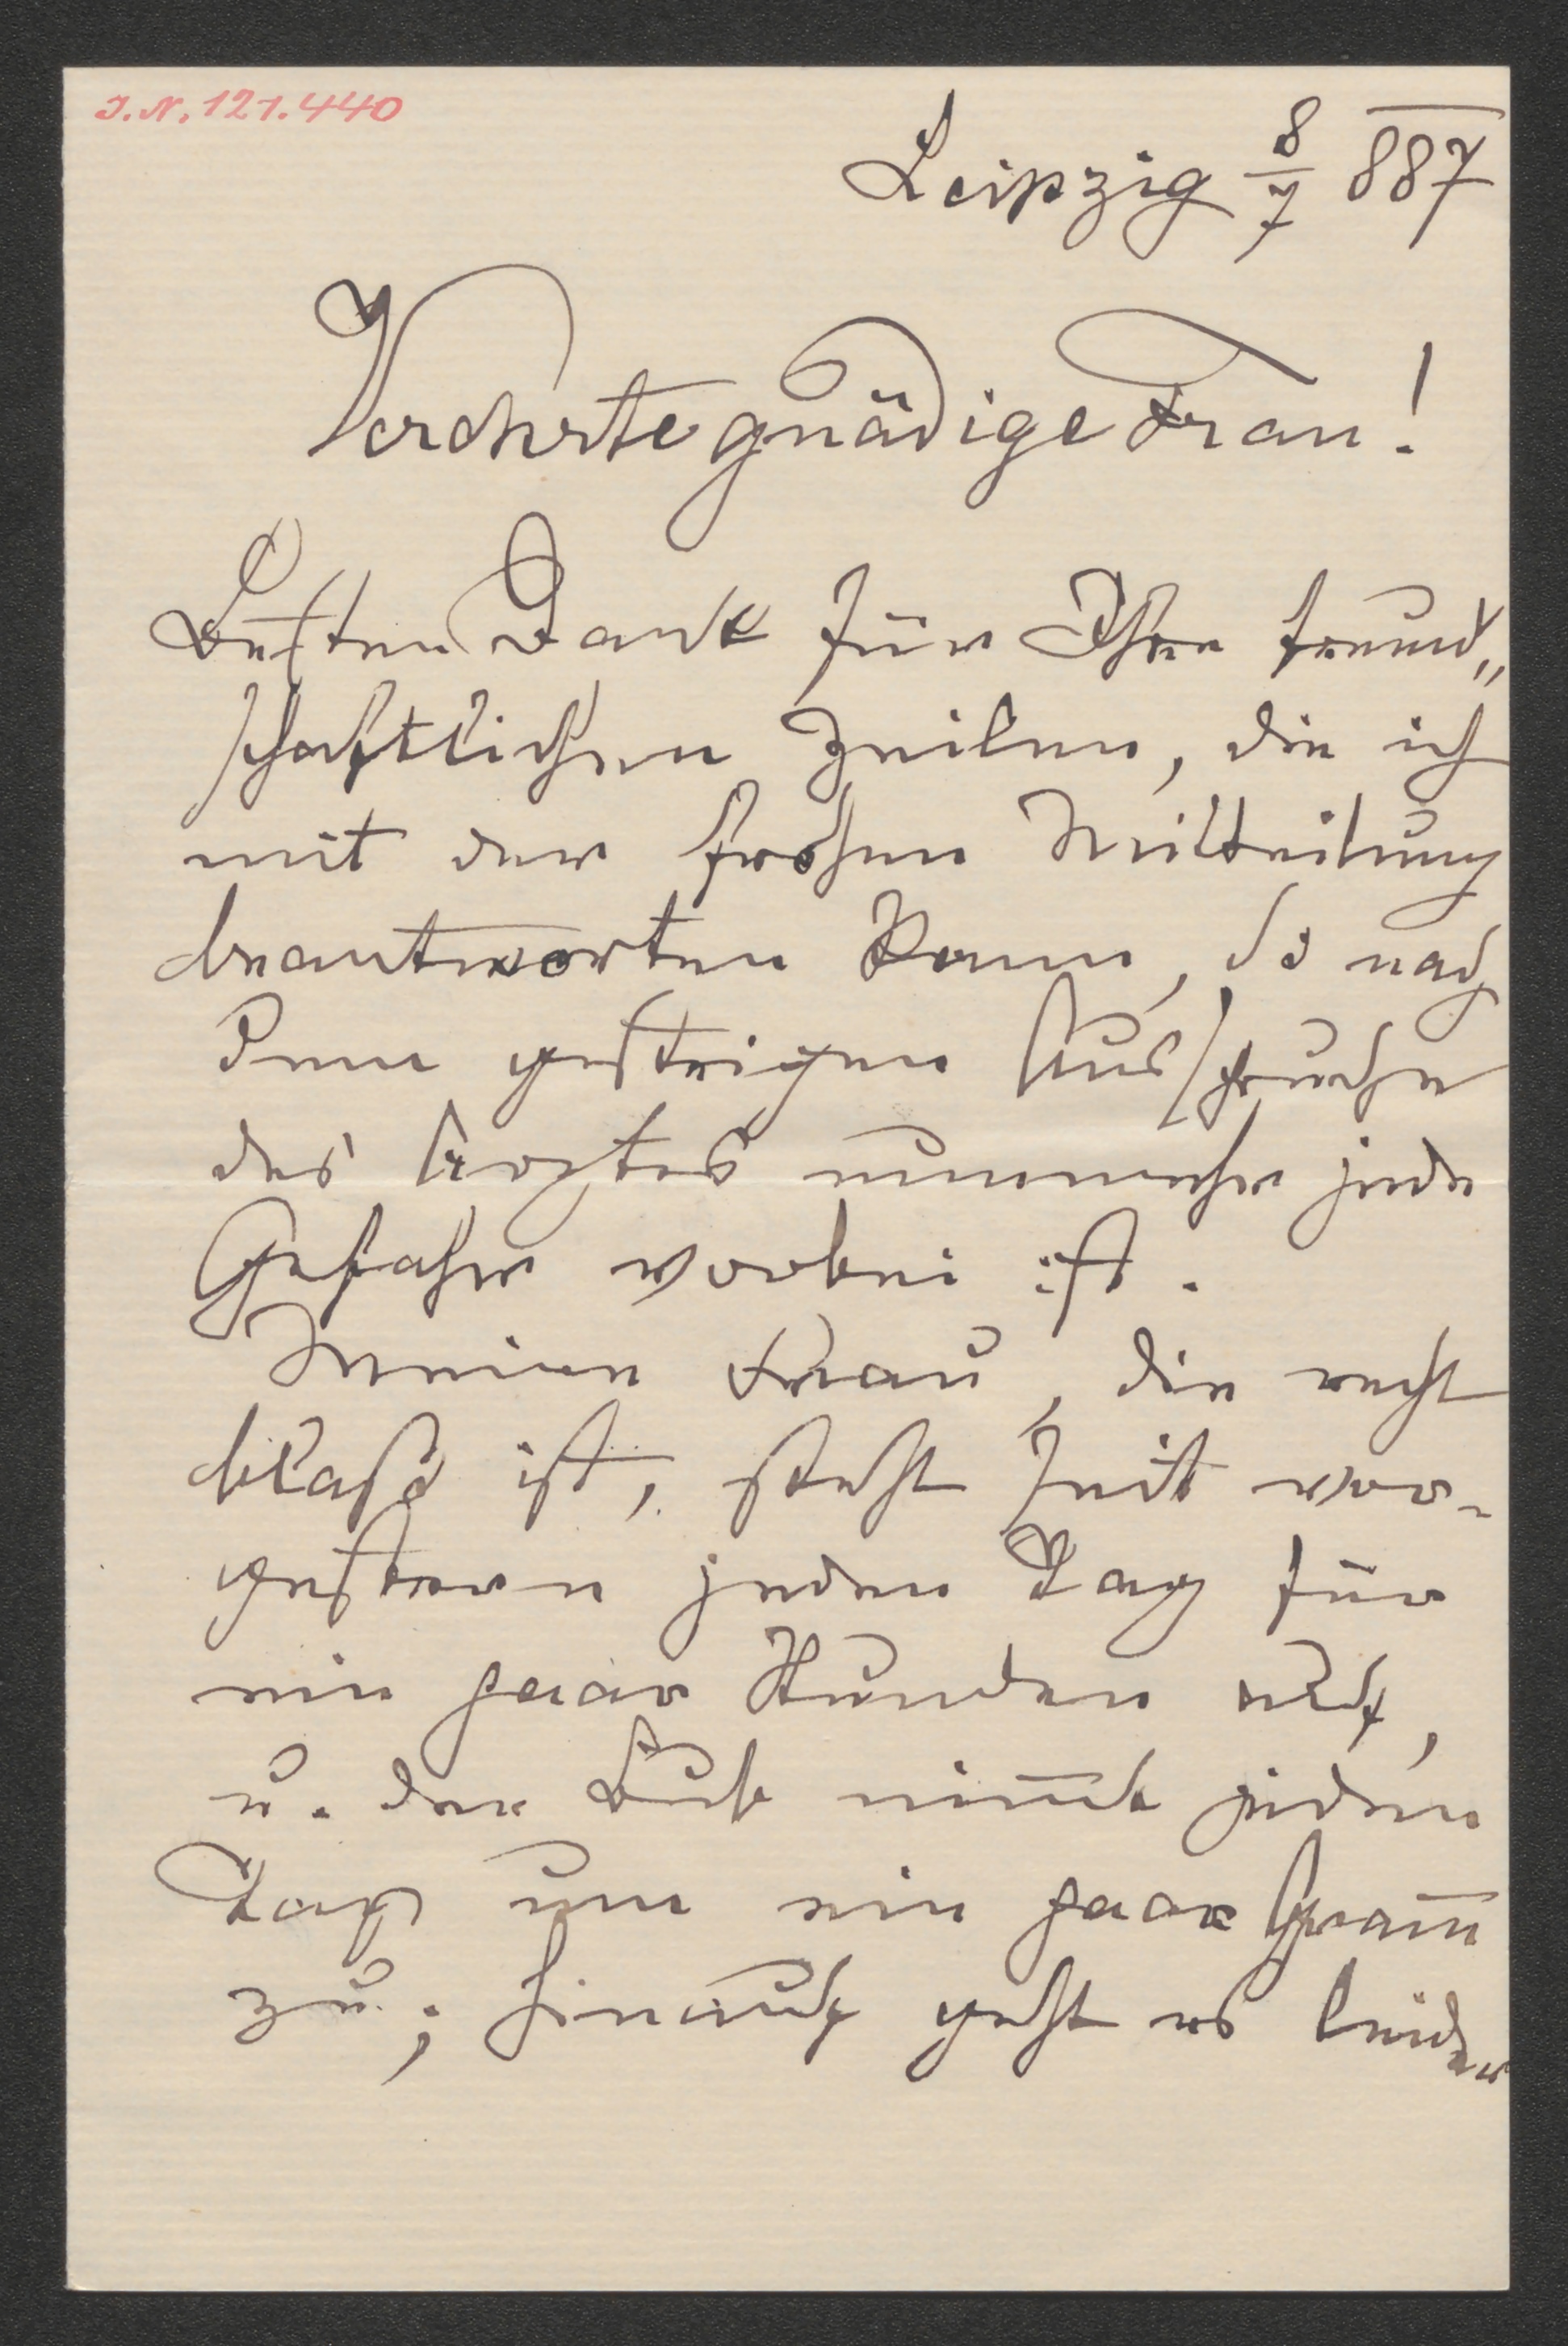 J.N. 121.440
Leipzig 8/7 887
Verehrte gnädige Frau!
Besten Dank für Ihre freund„
schaftlichen Zeilen, die ich
mit der frohen Mitteilung
beantworten kann, daß nach
dem gestrigen Ausspruche
des Arztes nunmehr jede
Gefahr vorbei ist.
Meine Frau, die recht
blaß ist, steht seit vor-
gestern jeden Tag für
ein paar Stunden auf,
u. der Bub nim̅t jeden
Tag um ein paar Gram̅
zu; hinauf geht es leider